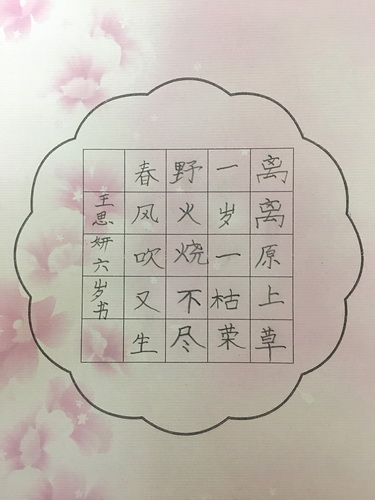 离离原上草
一岁一枯荣
野火烧不尽
春风吹又生
王思妍六岁书